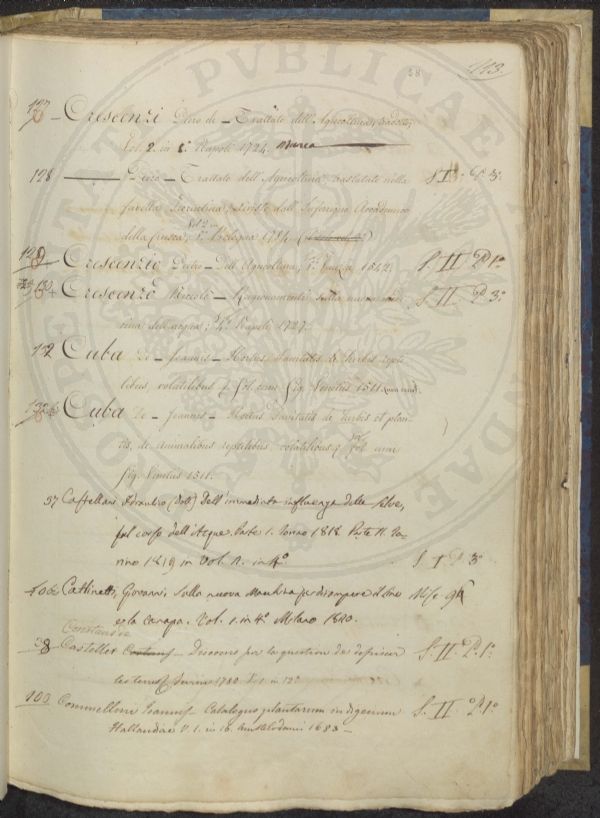 PVBLICAE
58
113.
127 – Crescenzi Piero de – Trattato dell'Agricoltura, tradotto,
Vol. 2. in 8° Napoli 1724. manca
128 ——— Piero – Trattato dell'Agricoltura, traslatato nella S. I° P. 3°
favella Fiorentina, rivisto dall'Inferigno Accademico
della Crusca, Vol. 2 8° Bologna 1784
129 Crescenzio Pietro – Dell'Agricoltura, 1542. S. II P. 1°
130 Crescenzo Niccolò – Ragionamenti sulla nuova medi- S. II. P. 3°
cina dell'acqua; 4° Napoli 1727.
132 Cuba de – Joannis – Hortus Sanitatis de herbis, repti-
libus, volatilibus fol. cum fig. Venetiis 1511
132 Cuba de – Joannis – Hortus Sanitatis de herbis et plan-
tis, de animalibus reptilibus, volatilibus, fol. cum
fig. Venetiis 1511.
57 Castellani (Dott) Dell'immediata influenza delle selve,
sul corso dell'Acque. Parte 1. Torino 1818. Parte II. To-
rino 1819 in Vol. in 4° S. I P. 3°
Cattinetti, Giovanni, Sulla nuova Macchina per dirompere il lino
e la canapa. Vol. 1. in 4° Milano 1810.
Constance
38 Castellet – Discorso per la question de
1780 in 12° S. II. P. 1°
100 Commellini Joannis Catalogus plantarum indigenarum S. II. P. 1°
Hollandiae V. 1. in 16. Amstelodami 1683 –